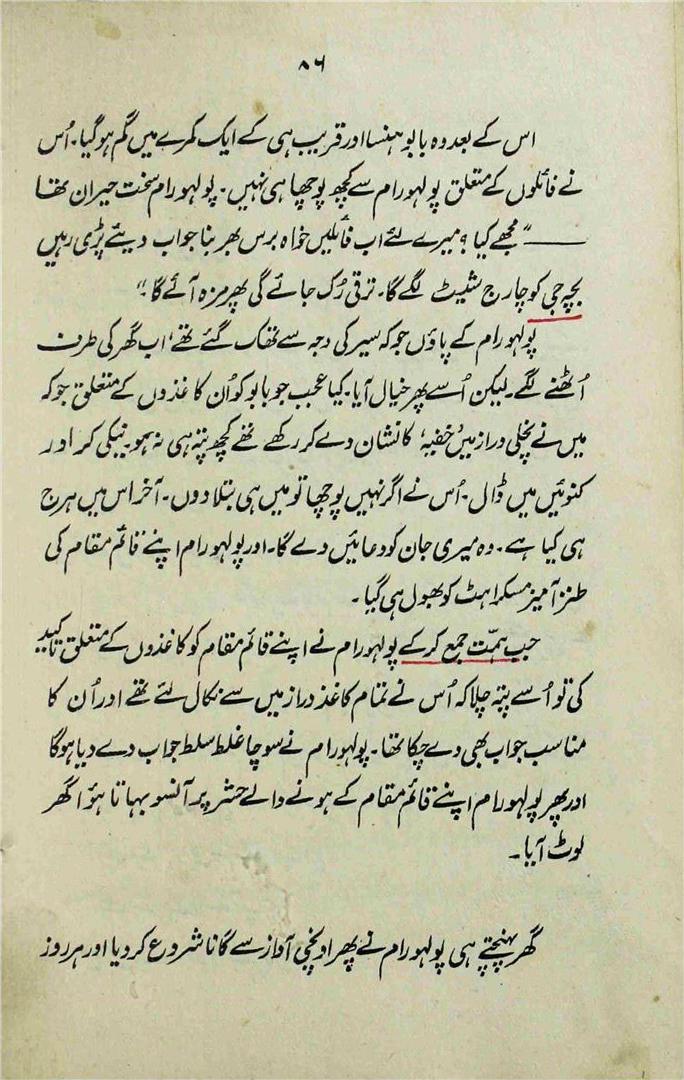 ۸۶
اس کے بعد وہ بابو ہنسا اور قریب ہی کے ایک کمرے میں گم ہو گیا۔ اُس
نے فائلوں کے متعلق پولہو رام سے کچھ پوچھا ہی نہیں۔ پولہو رام سخت حیران تھا
——"مجھے کیا؟ میرے لئے اب فائلیں خواہ برس بھر بنا جواب دیئے پڑی رہیں
بچہ جی کو چارج شیٹ لگے گا۔ ترقی رُک جائے گی پھر مزہ آئے گا۔"
پولہو رام کے پاؤں جو کہ سیر کی وجہ سے تھک گئے تھے، اب گھر کی طرف
اُٹھنے لگے۔ لیکن اُسے پھر خیال آیا۔ کیا عجب جو بابو کو اُن کاغذوں کے متعلق جو کہ
میں نے نچلی دراز میں 'خفیہ' کا نشان دے کر رکھے تھے کچھ پتہ ہی نہ ہو۔ نیکی کر اور
کنوئیں میں ڈال۔ اُس نے اگر نہیں پوچھا تو میں ہی بتلا دوں۔ آخر اس میں ہرج
ہی کیا ہے۔ وہ میری جان کو دعائیں دے گا۔ اور پولہو رام اپنے قائم مقام کی
طنز آمیز مسکراہٹ کو بھول ہی گیا۔
جب ہمّت جمع کر کے پولہو رام نے اپنے قائم مقام کو کاغذوں کے متعلق تاکید
کی تو اُسے پتہ چلا کہ اُس نے تمام کاغذ دراز میں سے نکال لئے تھے اور اُن کا
مناسب جواب بھی دے چکا تھا۔ پولہو رام نے سوچا غلط سلط جواب دے دیا ہوگا
اور پھر پولہو رام اپنے قائم مقام کے ہونے والے حشر پر آنسو بہاتا ہوُا گھر
لوٹ آیا۔
گھر پہنچتے ہی پولہو رام نے پھر اونچی آواز سے گانا شروع کر دیا اور ہر روز